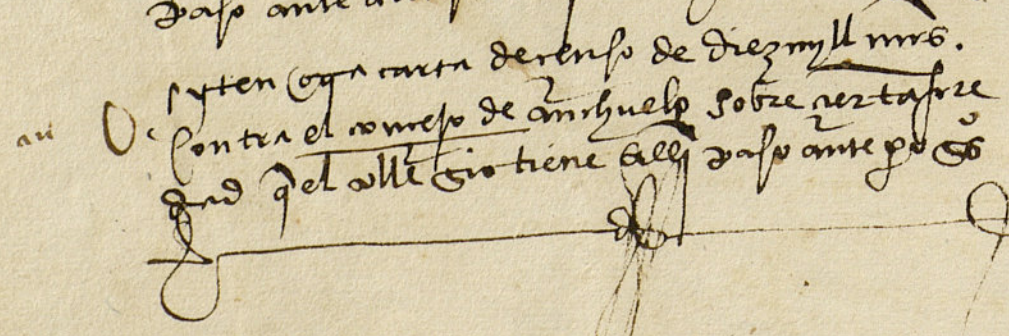 paso ante
yten otra carta de censo de diez myll mrs.
contra el conçejo de anchuelo sobre çierta fere
dad q el colleg̃io tiene alli paso ante pº gs